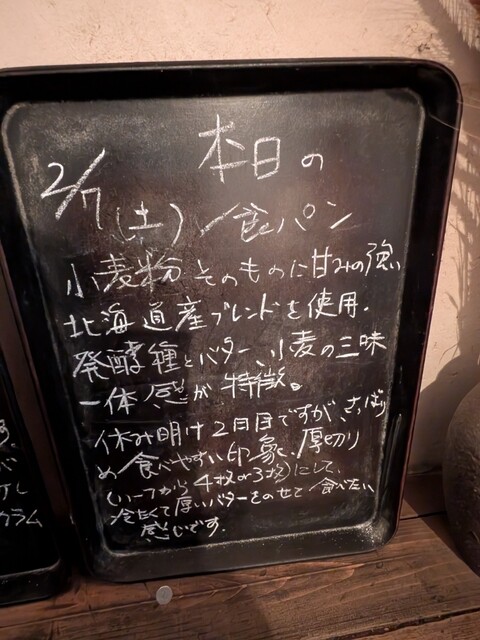 本日の
2/7(土) 食パン
小麦粉そのものに甘みの強い
北海道産ブレンドを使用.
発酵種とバター、小麦の三味
一体感が特徴。
休み明け2日目ですが、さっぱり
め食べやすい印象、厚切り
(ハーフから4枚or3枚)にして、
冷たくて厚いバターをのせて食べたい
感じです.
ラム